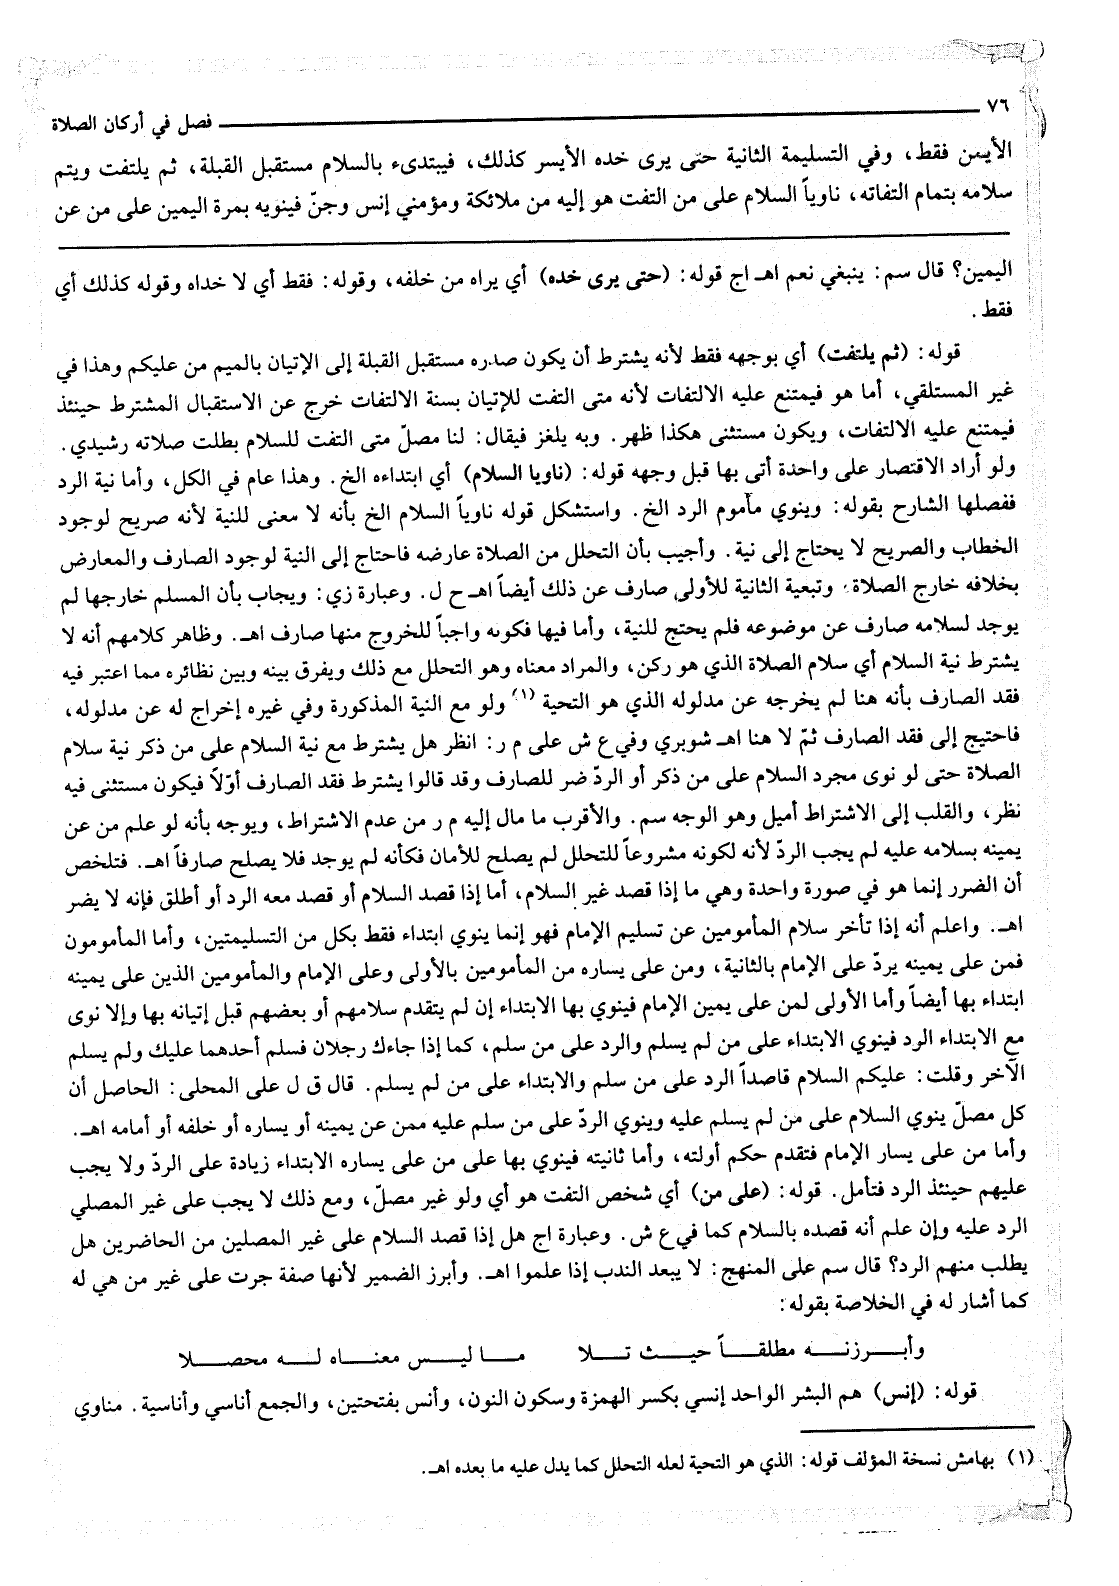 ٧٦ فصل في أركان الصلاة
الأيمن فقط، وفي التسليمة الثانية حتى يرى خده الأيسر كذلك، فيبتدىء بالسلام مستقبل القبلة، ثم يلتفت ويتم
سلامه بتمام التفاته، ناوياً السلام على من التفت هو إليه من ملائكة ومؤمني إنس وجنّ فينويه بمرة اليمين على من عن
اليمين؟ قال سم: ينبغي نعم اهـ اج قوله: (حتى يرى خده) أي يراه من خلفه، وقوله: فقط أي لا خداه وقوله كذلك أي
فقط.
قوله: (ثم يلتفت) أي بوجهه فقط لأنه يشترط أن يكون صدره مستقبل القبلة إلى الإتيان بالميم من عليكم وهذا في
غير المستلقي، أما هو فيمتنع عليه الالتفات لأنه متى التفت للإتيان بسنة الالتفات خرج عن الاستقبال المشترط حينئذ
فيمتنع عليه الالتفات، ويكون مستثنى هكذا ظهر. وبه يلغز فيقال: لنا مصلّ متى التفت للسلام بطلت صلاته رشيدي.
ولو أراد الاقتصار على واحدة أتى بها قبل وجهه قوله: (ناويا السلام) أي ابتداءه الخ. وهذا عام في الكل، وأما نية الرد
ففصلها الشارح بقوله: وينوي مأموم الرد الخ. واستشكل قوله ناوياً السلام الخ بأنه لا معنى للنية لأنه صريح لوجود
الخطاب والصريح لا يحتاج إلى نية. وأجيب بأن التحلل من الصلاة عارضه فاحتاج إلى النية لوجود الصارف والمعارض
بخلافه خارج الصلاة، وتبعية الثانية للأولى صارف عن ذلك أيضاً اهـ ح ل. وعبارة زي: ويجاب بأن المسلم خارجها لم
يوجد لسلامه صارف عن موضوعه فلم يحتج للنية، وأما فيها فكونه واجباً للخروج منها صارف اهـ. وظاهر كلامهم أنه لا
يشترط نية السلام أي سلام الصلاة الذي هو ركن، والمراد معناه وهو التحلل مع ذلك ويفرق بينه وبين نظائره مما اعتبر فيه
فقد الصارف بأنه هنا لم يخرجه عن مدلوله الذي هو التحية (١) ولو مع النية المذكورة وفي غيره إخراج له عن مدلوله،
فاحتيج إلى فقد الصارف ثمّ لا هنا اهـ شوبري وفي ع ش على م ر: انظر هل يشترط مع نية السلام على من ذكر نية سلام
الصلاة حتى لو نوى مجرد السلام على من ذكر أو الردّ ضر للصارف وقد قالوا يشترط فقد الصارف أوّلاً فيكون مستثنى فيه
نظر، والقلب إلى الاشتراط أميل وهو الوجه سم. والأقرب ما مال إليه م ر من عدم الاشتراط، ويوجه بأنه لو علم من عن
يمينه بسلامه عليه لم يجب الردّ لأنه لكونه مشروعاً للتحلل لم يصلح للأمان فكأنه لم يوجد فلا يصلح صارفاً اهـ. فتلخص
أن الضرر إنما هو في صورة واحدة وهي ما إذا قصد غير السلام، أما إذا قصد السلام أو قصد معه الرد أو أطلق فإنه لا يضر
اهـ. واعلم أنه إذا تأخر سلام المأمومين عن تسليم الإمام فهو إنما ينوي ابتداء فقط بكل من التسليمتين، وأما المأمومون
فمن على يمينه يردّ على الإمام بالثانية، ومن على يساره من المأمومين بالأولى وعلى الإمام والمأمومين الذين على يمينه
ابتداء بها أيضاً وأما الأولى لمن على يمين الإمام فينوي بها الابتداء إن لم يتقدم سلامهم أو بعضهم قبل إتيانه بها وإلا نوى
مع الابتداء الرد فينوي الابتداء على من لم يسلم والرد على من سلم، كما إذا جاءك رجلان فسلم أحدهما عليك ولم يسلم
الآخر وقلت: عليكم السلام قاصداً الرد على من سلم والابتداء على من لم يسلم. قال ق ل على المحلى: الحاصل أن
كل مصلّ ينوي السلام على من لم يسلم عليه وينوي الردّ على من سلم عليه ممن عن يمينه أو يساره أو خلفه أو أمامه اهـ.
وأما من على يسار الإمام فتقدم حكم أولته، وأما ثانيته فينوي بها على من على يساره الابتداء زيادة على الردّ ولا يجب
عليهم حينئذ الرد فتأمل. قوله: (على من) أي شخص التفت هو أي ولو غير مصلّ، ومع ذلك لا يجب على غير المصلي
الرد عليه وإن علم أنه قصده بالسلام كما في ع ش. وعبارة اج هل إذا قصد السلام على غير المصلين من الحاضرين هل
يطلب منهم الرد؟ قال سم على المنهج: لا يبعد الندب إذا علموا اهـ. وأبرز الضمير لأنها صفة جرت على غير من هي له
كما أشار له في الخلاصة بقوله:
وأبـرزنـه مطلقـاً حيـث تـلا مـا ليـس معنـاه لـه محصـلا
قوله: (إنس) هم البشر الواحد إنسي بكسر الهمزة وسكون النون، وأنس بفتحتين، والجمع أناسي وأناسية. مناوي
(١) بهامش نسخة المؤلف قوله: الذي هو التحية لعله التحلل كما يدل عليه ما بعده اهـ.